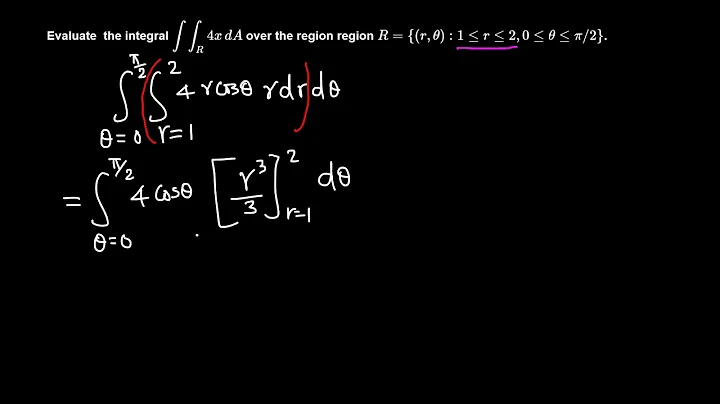 Evaluate the integral ∫∫_R 4x dA over the region region R = {(r, θ) : 1 ≤ r ≤ 2, 0 ≤ θ ≤ π/2}.
∫_{θ=0}^{π/2} (∫_{r=1}^{2} 4 r cosθ r dr) dθ
= ∫_{θ=0}^{π/2} 4 cosθ [r^3/3]_{r=1}^{2} dθ